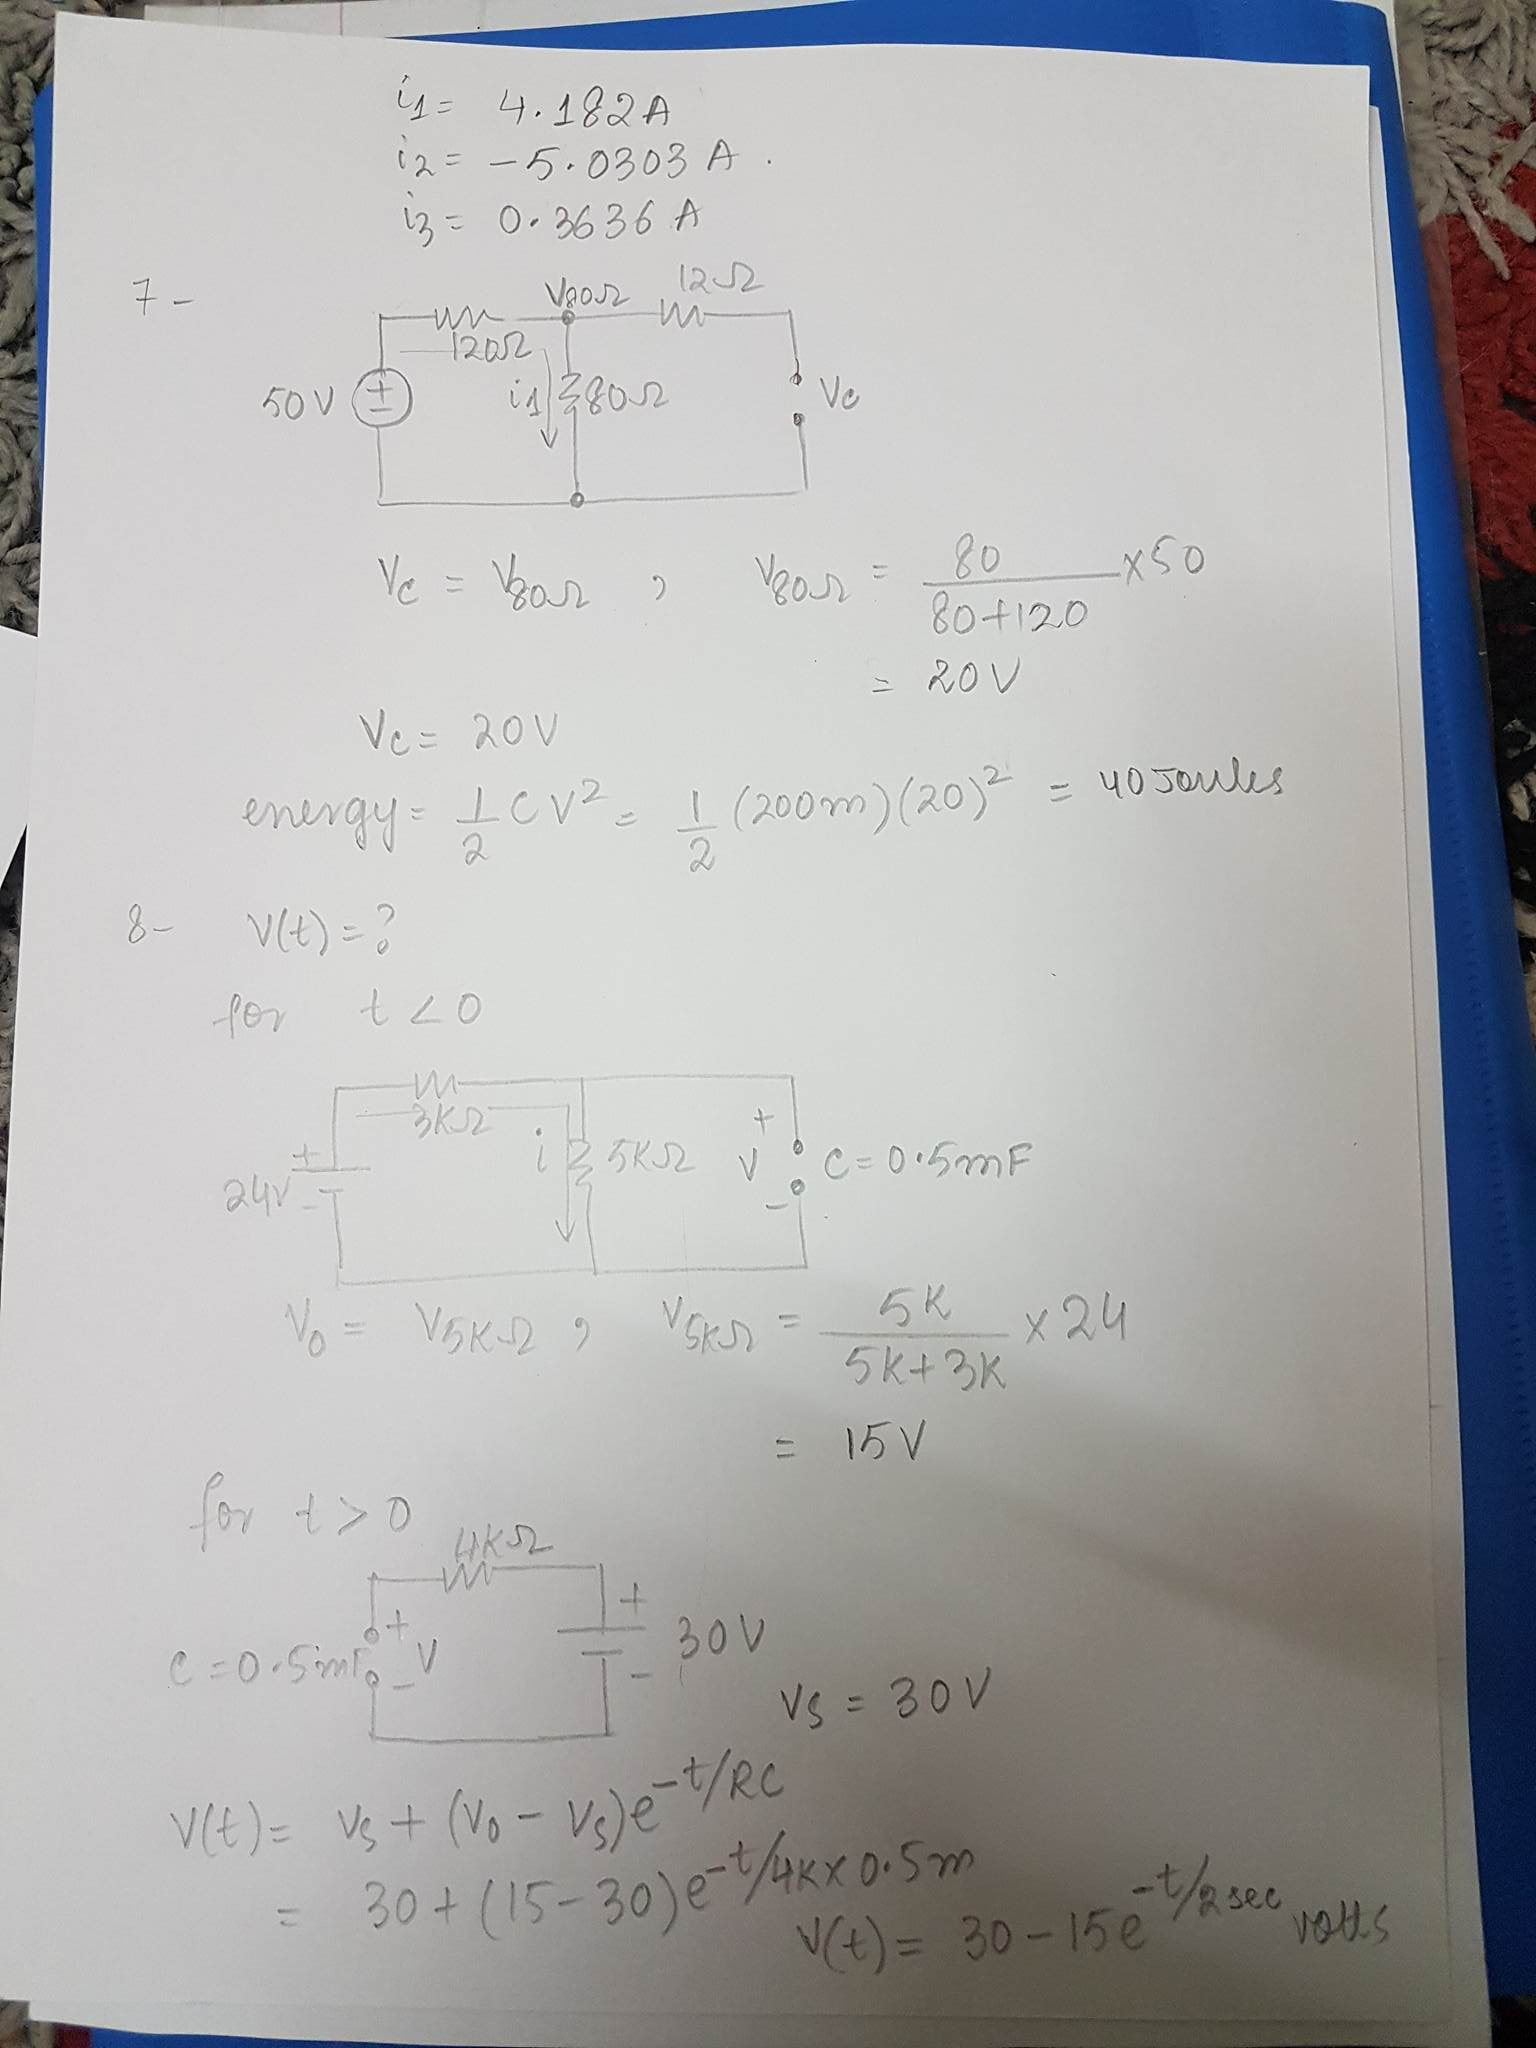 i1 = 4.182A
i2 = -5.0303 A.
i3 = 0.3636 A
7-
V80Ω 12Ω
120Ω
50V + - i1 80Ω Vc
Vc = V80Ω , V80Ω = 80/(80+120) x50
= 20V
Vc = 20V
energy = 1/2 CV² = 1/2 (200m)(20)² = 40 Joules
8- V(t) = ?
for t < 0
3KΩ
24V + - i 5KΩ + V - C = 0.5mF
V0 = V5KΩ , V5KΩ = 5K/(5K+3K) x 24
= 15V
for t > 0
4KΩ
C = 0.5mF + V - + - 30V
Vs = 30V
V(t) = Vs + (V0 - Vs)e^-t/RC
= 30 + (15-30)e^-t/4Kx0.5m
V(t) = 30 - 15e^-t/2sec volts